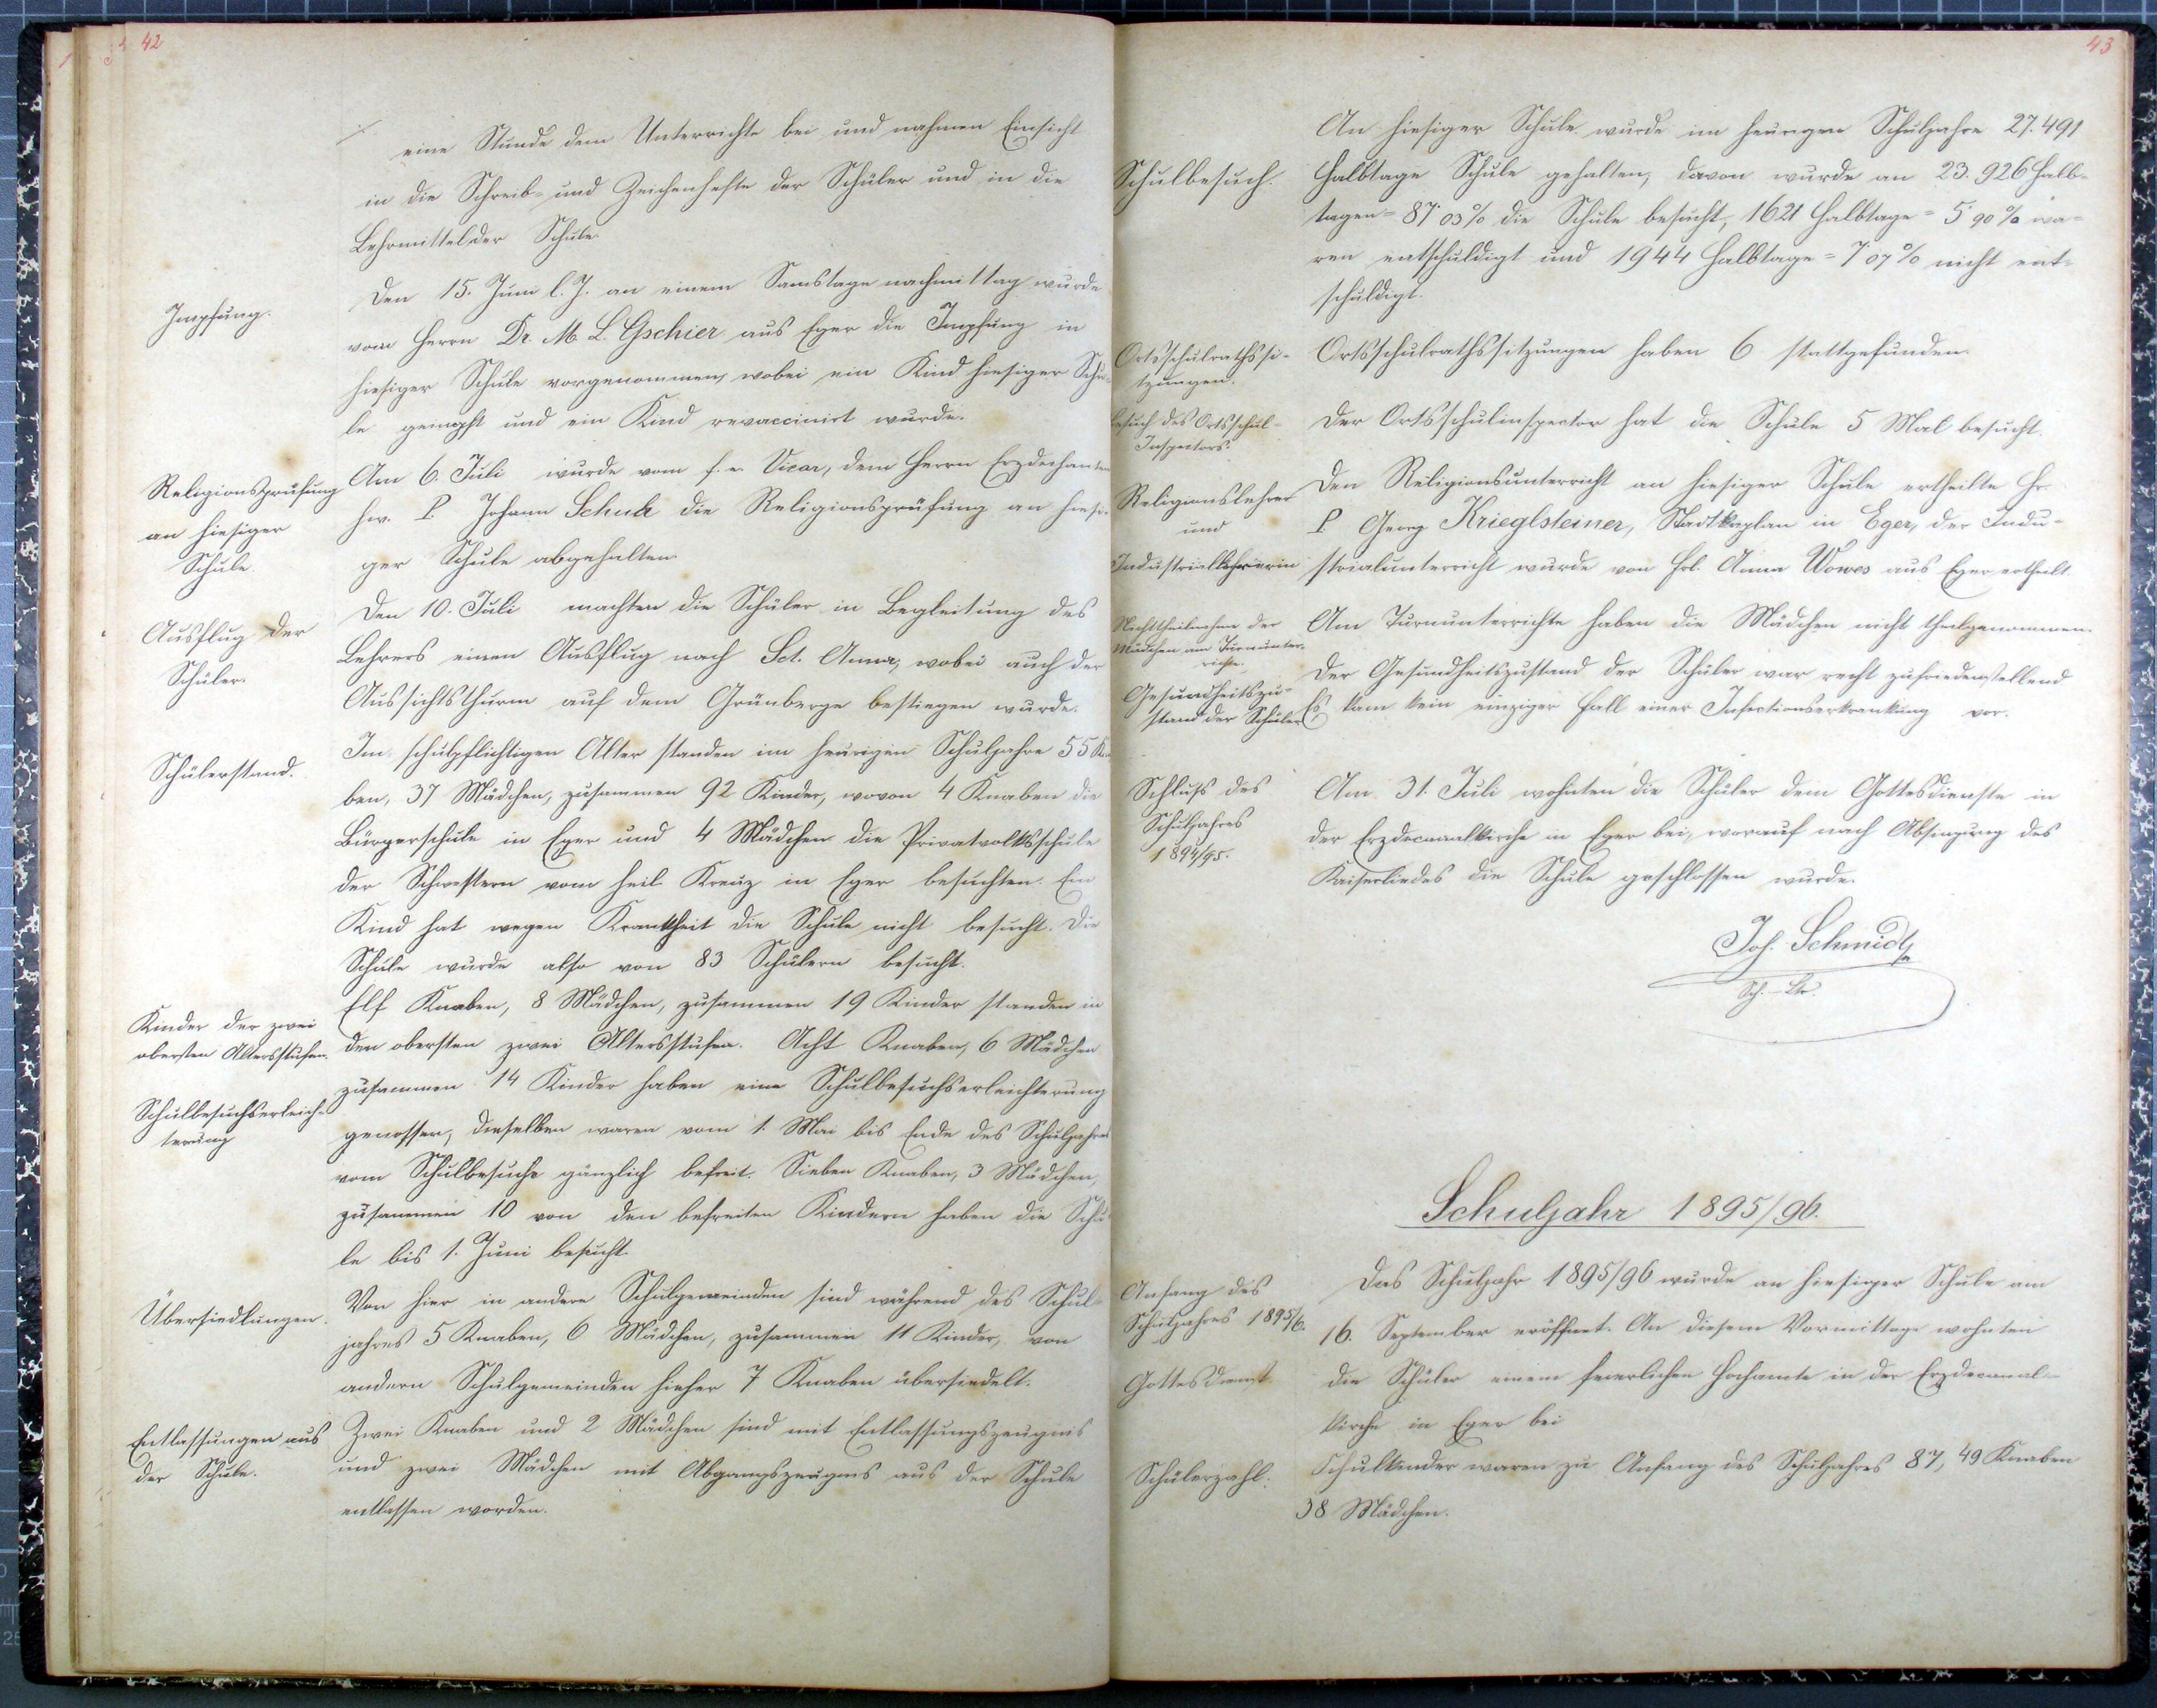 42
eine Stunde dem Unterrichte bei und nahmen Einsicht
in die Schreib- und Zeichenhefte der Schüler und in die
Lehrmittel der Schule.
Impfung.
Den 15. Juni l. J. an einem Samstage nachmittag wurde
vom Herrn Dr. M. L. Gschier aus Eger die Impfung in
hiesiger Schule vorgenommen, wobei ein Kind hiesiger Schu-
le geimpft und ein Kind revaccinirt wurde.
Religionsprüfung
an hiesiger
Schule.
Am 6. Juli wurde vom f. e. Vicar, dem Herrn Erzdechanten
hw. P. Johann Schuh die Religionsprüfung an hiesi-
ger Schule abgehalten.
Ausflug der
Schüler.
Den 10. Juli machten die Schüler in Begleitung des
Lehrers einen Ausflug nach Sct. Anna, wobei auch der
Aussichtsthurm auf dem Grünberge bestiegen wurde.
Schülerstand.
Im schulpflichtigen Alter standen im heurigen Schuljahre 55 Kna
ben, 37 Mädchen, zusammen 92 Kinder, wovon 4 Knaben die
Bürgerschule in Eger und 4 Mädchen die Privatvolksschule
der Schwestern vom heil. Kreuz in Eger besuchten. Ein
Kind hat wegen Krankheit die Schule nicht besucht. Die
Schule wurde also von 83 Schülern besucht.
Kinder der zwei
obersten Altersstufen.
Elf Knaben, 8 Mädchen, zusammen 19 Kinder standen in
den obersten zwei Altersstufen. Acht Knaben, 6 Mädchen
Schulbesuchserleich-
terung
zusammen 14 Kinder haben eine Schulbesuchserleichterung
genossen, dieselben waren vom 1. Mai bis Ende des Schuljahres
vom Schulbesuche gänzlich befreit. Sieben Knaben, 3 Mädchen,
zusammen 10 von den befreiten Kindern haben die Schu
le bis 1. Juni besucht.
Übersiedlungen.
Von hier in andere Schulgemeinden sind während des Schul-
jahres 5 Knaben, 6 Mädchen, zusammen 11 Kinder, von
andern Schulgemeinden hieher 7 Knaben übersiedelt.
Entlassungen aus
der Schule.
Zwei Knaben und 2 Mädchen sind mit Entlassungszeugnis
und zwei Mädchen mit Abgangszeugnis aus der Schule
entlassen worden.
43
Schulbesuch.
An hiesiger Schule wurde im heurigen Schuljahre 27.491
Halbtage Schule gehalten, davon wurde an 23.926 Halb-
tagen = 87·03% die Schule besucht, 1621 Halbtage = 5·90% wa-
ren entschuldigt und 1944 Halbtage = 7·07% nicht ent-
schuldigt.
Ortsschulrathssi-
tzungen.
Ortsschulrathssitzungen haben 6 stattgefunden.
Besuch des Ortsschul-
Inspectors.
Der Ortsschulinspector hat die Schule 5 Mal besucht.
Religionslehrer
und
Industriallehrerin
Den Religionsunterricht an hiesiger Schule ertheilte Hr.
P. Georg Krieglsteiner, Stadtkaplan in Eger, der Indu-
strialunterricht wurde von Frl. Anna Wowes aus Eger ertheilt.
Nichttheilnahme der
Mädchen am Turnunter-
richte.
Am Turnunterrichte haben die Mädchen nicht theilgenommen.
Gesundheitszu-
stand der Schüler
Der Gesundheitszustand der Schüler war recht zufriedenstellend
Es kam kein einziger Fall einer Infectionserkrankung vor.
Schluß des
Schuljahres
1894/95.
Am 31. Juli wohnten die Schüler dem Gottesdienste in
der Erzdecanalkirche in Eger bei, worauf nach Absingung des
Kaiserliedes die Schule geschlossen wurde.
Joh. Schmidt
Sch.-Ltr.
Schuljahr 1895/96.
Anfang des
Schuljahres 1895/6.
Das Schuljahr 1895/96 wurde an hiesiger Schule am
16. September eröffnet. An diesem Vormittage wohnten
Gottesdienst
die Schüler einem feierlichen Hochamte in der Erzdecanal-
kirche in Eger bei
Schülerzahl.
Schulkinder waren zu Anfang des Schuljahres 87, 49 Knaben
38 Mädchen.